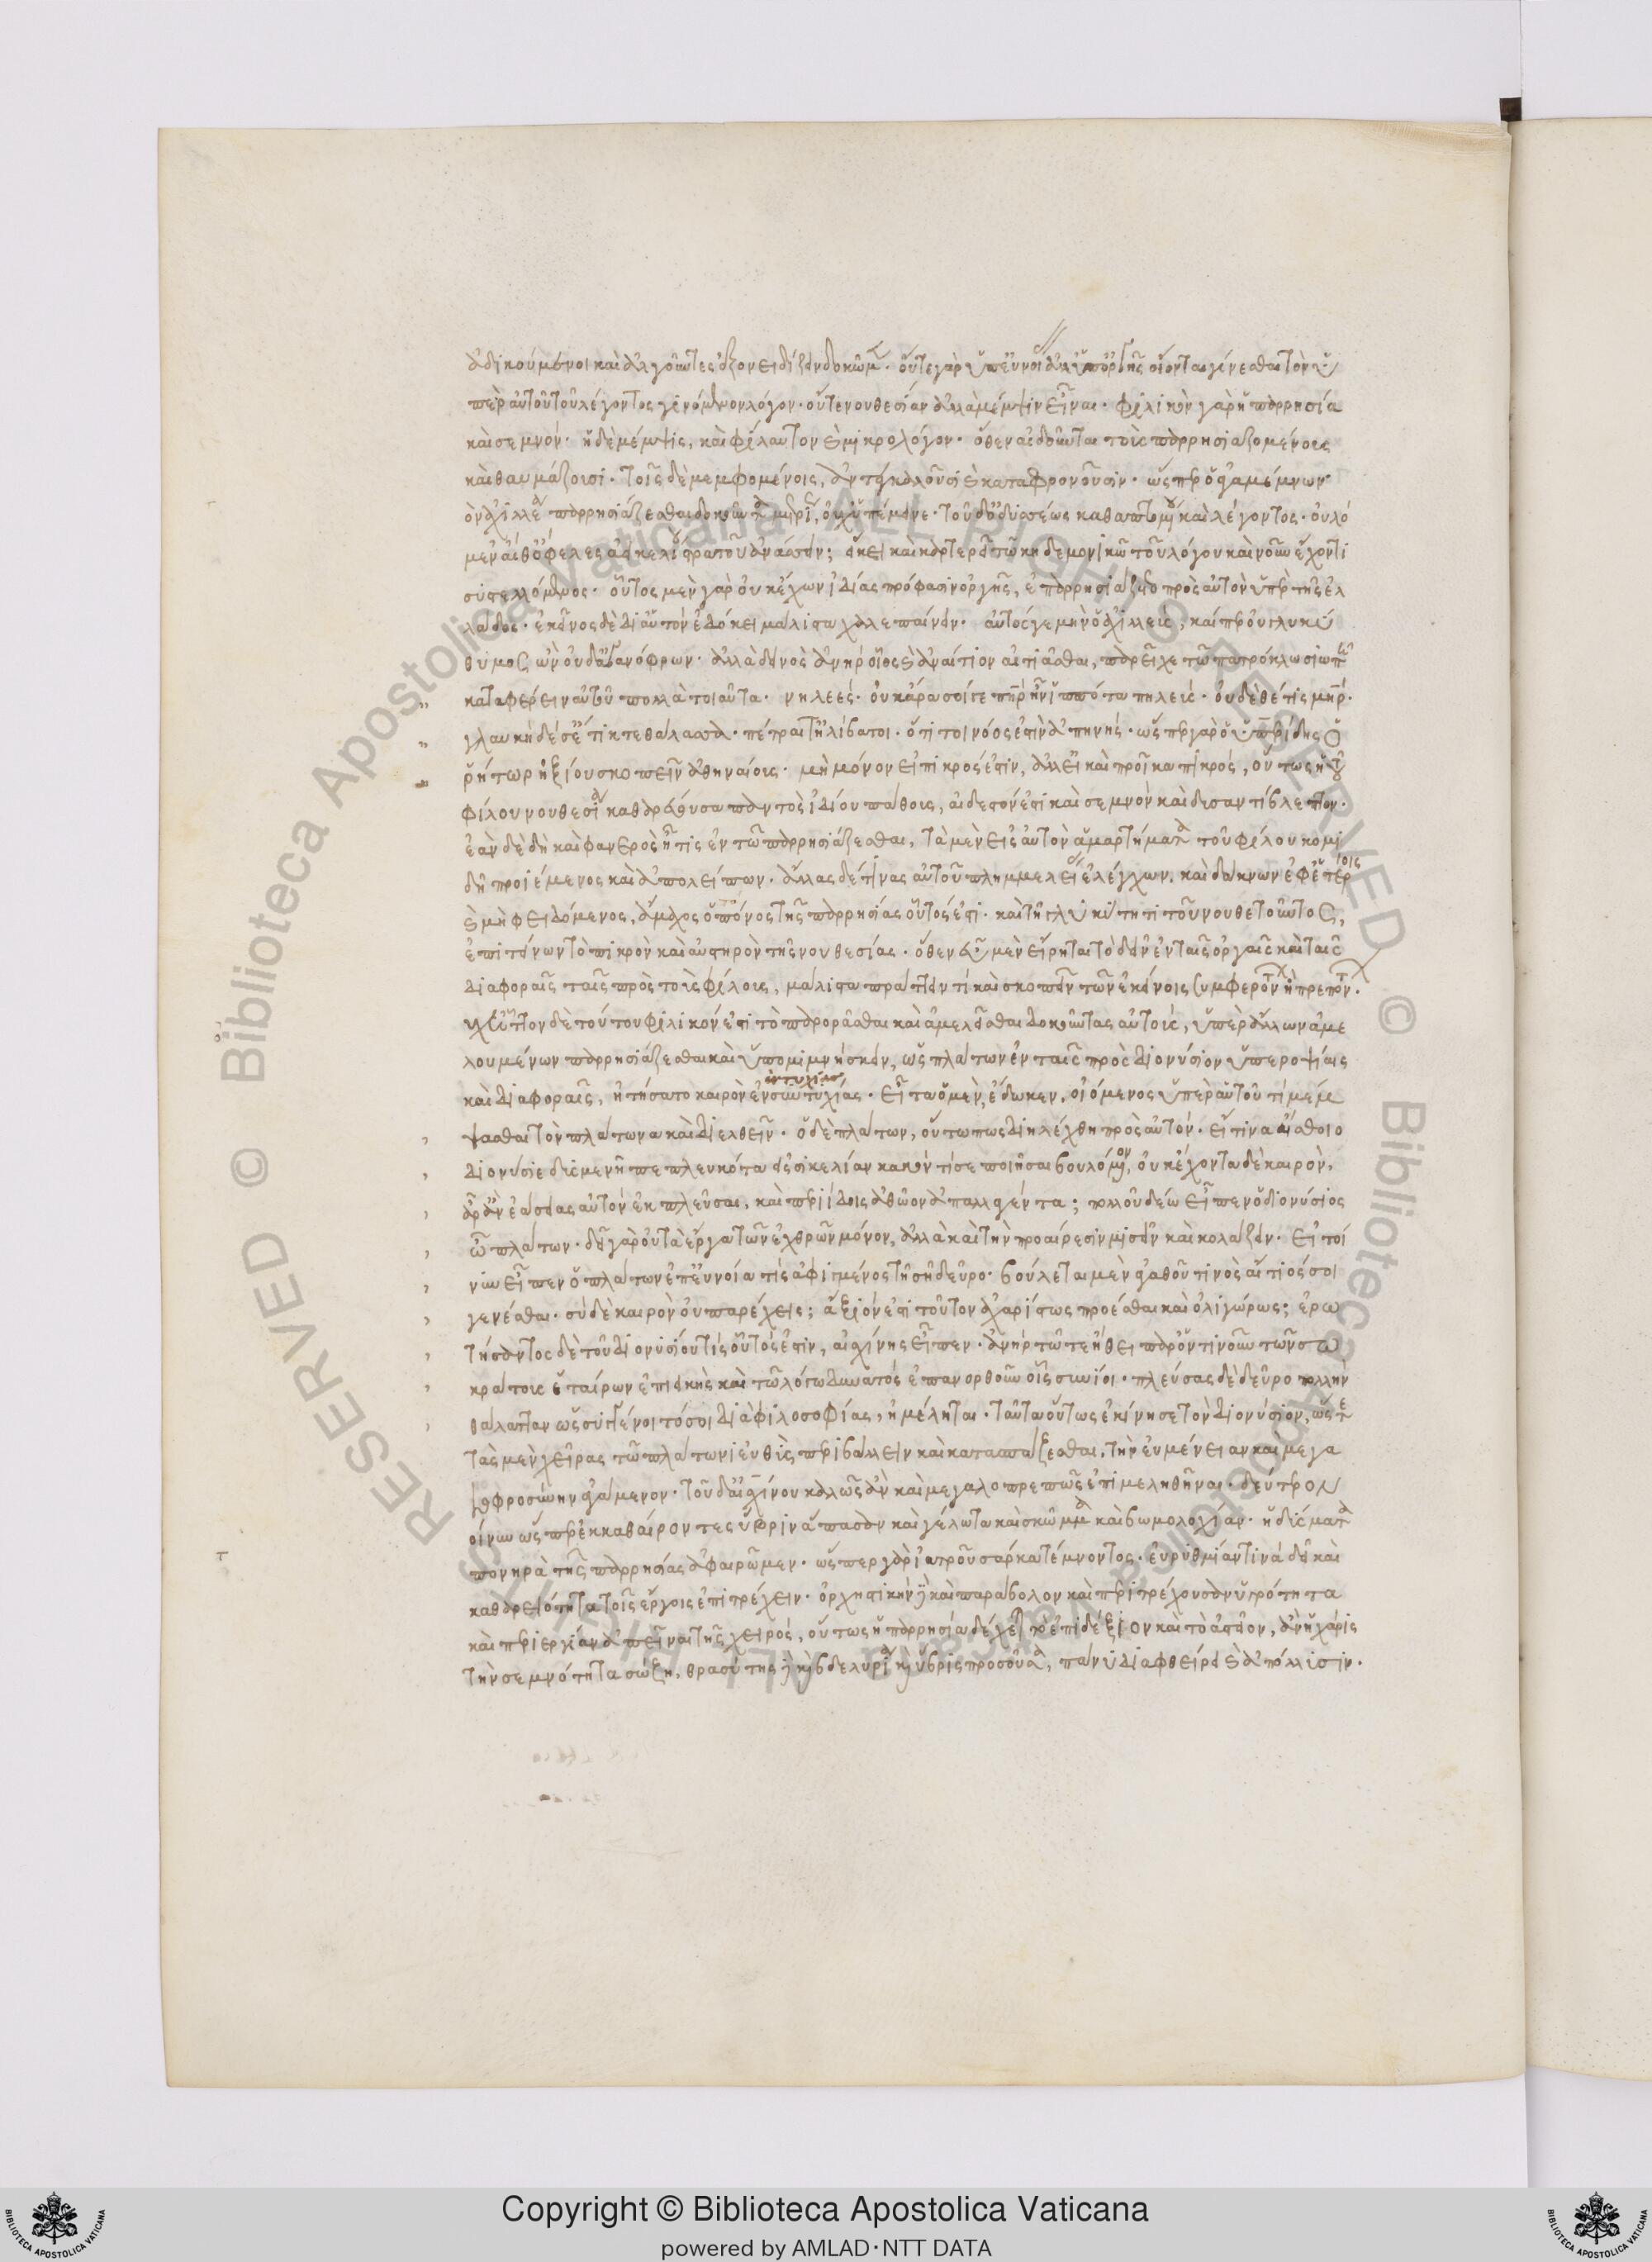 ἀδικούμενοι καὶ ἀλγοῦντες ὀξον ειδίζειν δοκῶμεν. οὔτε γὰρ ὑπ' εὐνοίας ἀλλ' ὑπ' ὀργῆς οἴονται γίνεσθαι τὸν ὑ
πὲρ αὐτοῦ τοῦ λέγοντος γινόμενον λόγον. οὔτε νουθεσίαν ἀλλὰ μέμψιν εἶναι. φιλικὸν γὰρ ἡ παρρησία
καὶ σεμνόν. ἡ δὲ μέμψις, καὶ φίλαυτον καὶ μικρολόγον. ὅθεν αἰδοῦνται τοὺς παρρησιαζομένους
καὶ θαυμάζουσι. τοῖς δὲ μεμφομένοις, ἀντεγκαλοῦσι καὶ καταφρονοῦσιν. ὥσπερ ὁ ἀγαμέμνων
ὸν ἀχιλλέα παρρησιάζεσθαι δοκοῦντα μετρί, οὐχ ὑπέμεινε. τοῦ δ' ὀδυσσέως καθαπτομένου καὶ λέγοντος. οὐλό
μεν' αἴθ' ὤφελες ἀεικελίου στρατοῦ ἀνάσσειν; εἴκει καὶ καρτερεῖ τῷ κηδεμονικῷ τοῦ λόγου καὶ νοῦν ἔχοντι
συστελλόμενος. οὗτος μὲν γὰρ οὐκ ἔχων ἰδίας πρόφασιν ὀργῆς, ἐπαρρησιάζετο πρὸς αὐτὸν ὑπὲρ τῆς ἑλ
λάδος. ἐκεῖνος δὲ δι' αὑτὸν ἐδόκει μάλιστα χαλεπαίνειν. αὐτός γε μὴν ὁ ἀχιλλεύς, καίπερ οὐ γλυκύ
θυμος ὢν οὐδ' ἀγανόφρων. ἀλλὰ δεινὸς ἀνὴρ οἷος καὶ ἀναίτιον αἰτιάασθαι, παρεῖχε τῷ πατρόκλῳ σιωπῇ
καταφέρειν αὐτοῦ πολλὰ τοιαῦτα. νηλεές. οὐκ ἄρα σοί γε πατὴρ ἦν ἱππότα πηλεύς. οὐδὲ θέτις μήτηρ.
γλαυκὴ δέ σ' ἔτικτε θάλασσα. πέτραι τ' ἠλίβατοι. ὅτι τοι νόος ἐστὶν ἀπηνής. ὥσπερ γὰρ ὁ ὑπερίδης ὁ
ῥήτωρ ἠξίου σκοπεῖν ἀθηναίους. μὴ μόνον εἰ πικρός ἐστιν, ἀλλ' εἰ καὶ προῖκα πικρός, οὕτως ἡ τοῦ
φίλου νουθεσία καθαρεύουσα παντὸς ἰδίου πάθους, αἰδεστόν ἐστι καὶ σεμνὸν καὶ δυσαντίβλεπτον.
ἐὰν δὲ δὴ καὶ φανερὸς ᾖ τις ἐν τῷ παρρησιάζεσθαι, τὰ μὲν εἰς αὐτὸν ἁμαρτήματα τοῦ φίλου κομι
δῇ προϊέμενος καὶ ἀπολείπων. ἄλλας δέ τινας αὐτοῦ πλημμελείας ἐλέγχων, καὶ δάκνων ἐφ' ἑτέροις
καὶ μὴ φειδόμενος, ἄμαχος ὁ τόνος τῆς παρρησίας οὗτός ἐστι. καὶ τῇ γλυκύτητι τοῦ νουθετοῦντος,
ἐπιτείνων τὸ πικρὸν καὶ αὐστηρὸν τῆς νουθεσίας. ὅθεν εὖ μὲν εἴρηται τὸ δεῖν ἐν ταῖς ὀργαῖς καὶ ταῖς
διαφοραῖς ταῖς πρὸς τοὺς φίλους, μάλιστα πράττειν τι καὶ σκοπεῖν τῶν ἐκείνοις συμφερόντων ἢ πρεπόντων.
οὐχ ἧττον δὲ τούτου φιλικόν ἐστι τὸ παρορᾶσθαι καὶ ἀμελεῖσθαι δοκοῦντας αὐτούς, ὑπὲρ ἄλλων ἀμε
λουμένων παρρησιάζεσθαι καὶ ὑπομιμνήσκειν, ὡς πλάτων ἐν ταῖς πρὸς διονύσιον ὑπεροψίαις
καὶ διαφοραῖς, ᾐτήσατο καιρὸν ἐν συντυχίας. εἶτα ὁ μὲν, ἔδωκεν, οἰόμενος ὑπὲρ αὑτοῦ τι μέμ
ἐντυχίας
ψασθαι τὸν πλάτωνα καὶ διελθεῖν. ὁ δὲ πλάτων, οὕτω πως διηλέχθη πρὸς αὐτόν. εἴ τινα αἴσθοιο
διονύσιε δυσμενῆ πεπλευκότα εἰς σικελίαν κακόν τί σε ποιῆσαι βουλόμενον, οὐκ ἔχοντα δὲ καιρὸν,
ἆρ' ἂν ἐάσειας αὐτὸν ἐκπλεῦσαι, καὶ περιίδοις ἀθῷον ἀπαλλαγέντα; πολλοῦ δέω εἶπεν ὁ διονύσιος
ὦ πλάτων. δεῖ γὰρ οὐ τὰ ἔργα τῶν ἐχθρῶν μόνον, ἀλλὰ καὶ τὴν προαίρεσιν μισεῖν καὶ κολάζειν. εἰ τοί
νυν εἶπεν ὁ πλάτων ἐπ' εὐνοίᾳ τις ἀφιγμένος τῇ σῇ δεῦρο. βούλεται μὲν ἀγαθοῦ τινὸς αἴτιός σοι
γενέσθαι. σὺ δὲ καιρὸν οὐ παρέχεις; ἄξιόν ἐστι τοῦτον ἀχαρίστως προέσθαι καὶ ὀλιγώρως; ἐρω
τήσαντος δὲ τοῦ διονυσίου τίς οὗτός ἐστιν, αἰσχίνης εἶπεν. ἀνὴρ τῷ τε ἤθει παρ' ὁντινοῦν τῶν σω
κράτους ἑταίρων ἐπιεικὴς καὶ τῷ λόγῳ δυνατὸς ἐπανορθοῦν οἷς συνίοι. πλεύσας δὲ δεῦρο πολλὴν
θάλατταν ὡς συγγένοιτό σοι διὰ φιλοσοφίας, ἠμέληται. ταῦτα οὕτως ἐκίνησε τὸν διονύσιον, ὥστε
τὰς μὲν χεῖρας τῷ πλάτωνι εὐθὺς περιβάλλειν καὶ κατασπάζεσθαι, τὴν εὐμένειαν καὶ μεγα
λοφροσύνην ἀγάμενον. τοῦ δ' αἰσχίνου καλῶς ἂν καὶ μεγαλοπρεπῶς ἐπιμεληθῆναι. δεύτερον
οἴνῳ ὥσπερ ἐκκαθαίροντες ὕβριν ἅπασαν καὶ γέλωτα καὶ σκῶμμα καὶ βωμολοχίαν. ἡδύσματα
πονηρὰ τῆς παρρησίας ἀφαιρῶμεν. ὥσπερ γὰρ ἰατροῦ σάρκα τέμνοντος. εὐρυθμίαν τινὰ δεῖ καὶ
καθαρειότητα τοῖς ἔργοις ἐπιτρέχειν. ὀρχηστικὴν δὲ καὶ παράβολον καὶ περιτρέχουσαν ὑγρότητα
καὶ περιεργίαν ἀπεῖναι τῆς χειρός, οὕτως ἡ παρρησία δέχεται τὸ ἐπιδέξιον καὶ τὸ ἀστεῖον, ἂν ἡ χάρις
τὴν σεμνότητα σώζῃ, θρασύτης δὲ καὶ βδελυρία καὶ ὕβρις προσοῦσα, πάνυ διαφθείρει καὶ ἀπόλλυσιν.
Copyright © Biblioteca Apostolica Vaticana
powered by AMLAD·NTT DATA